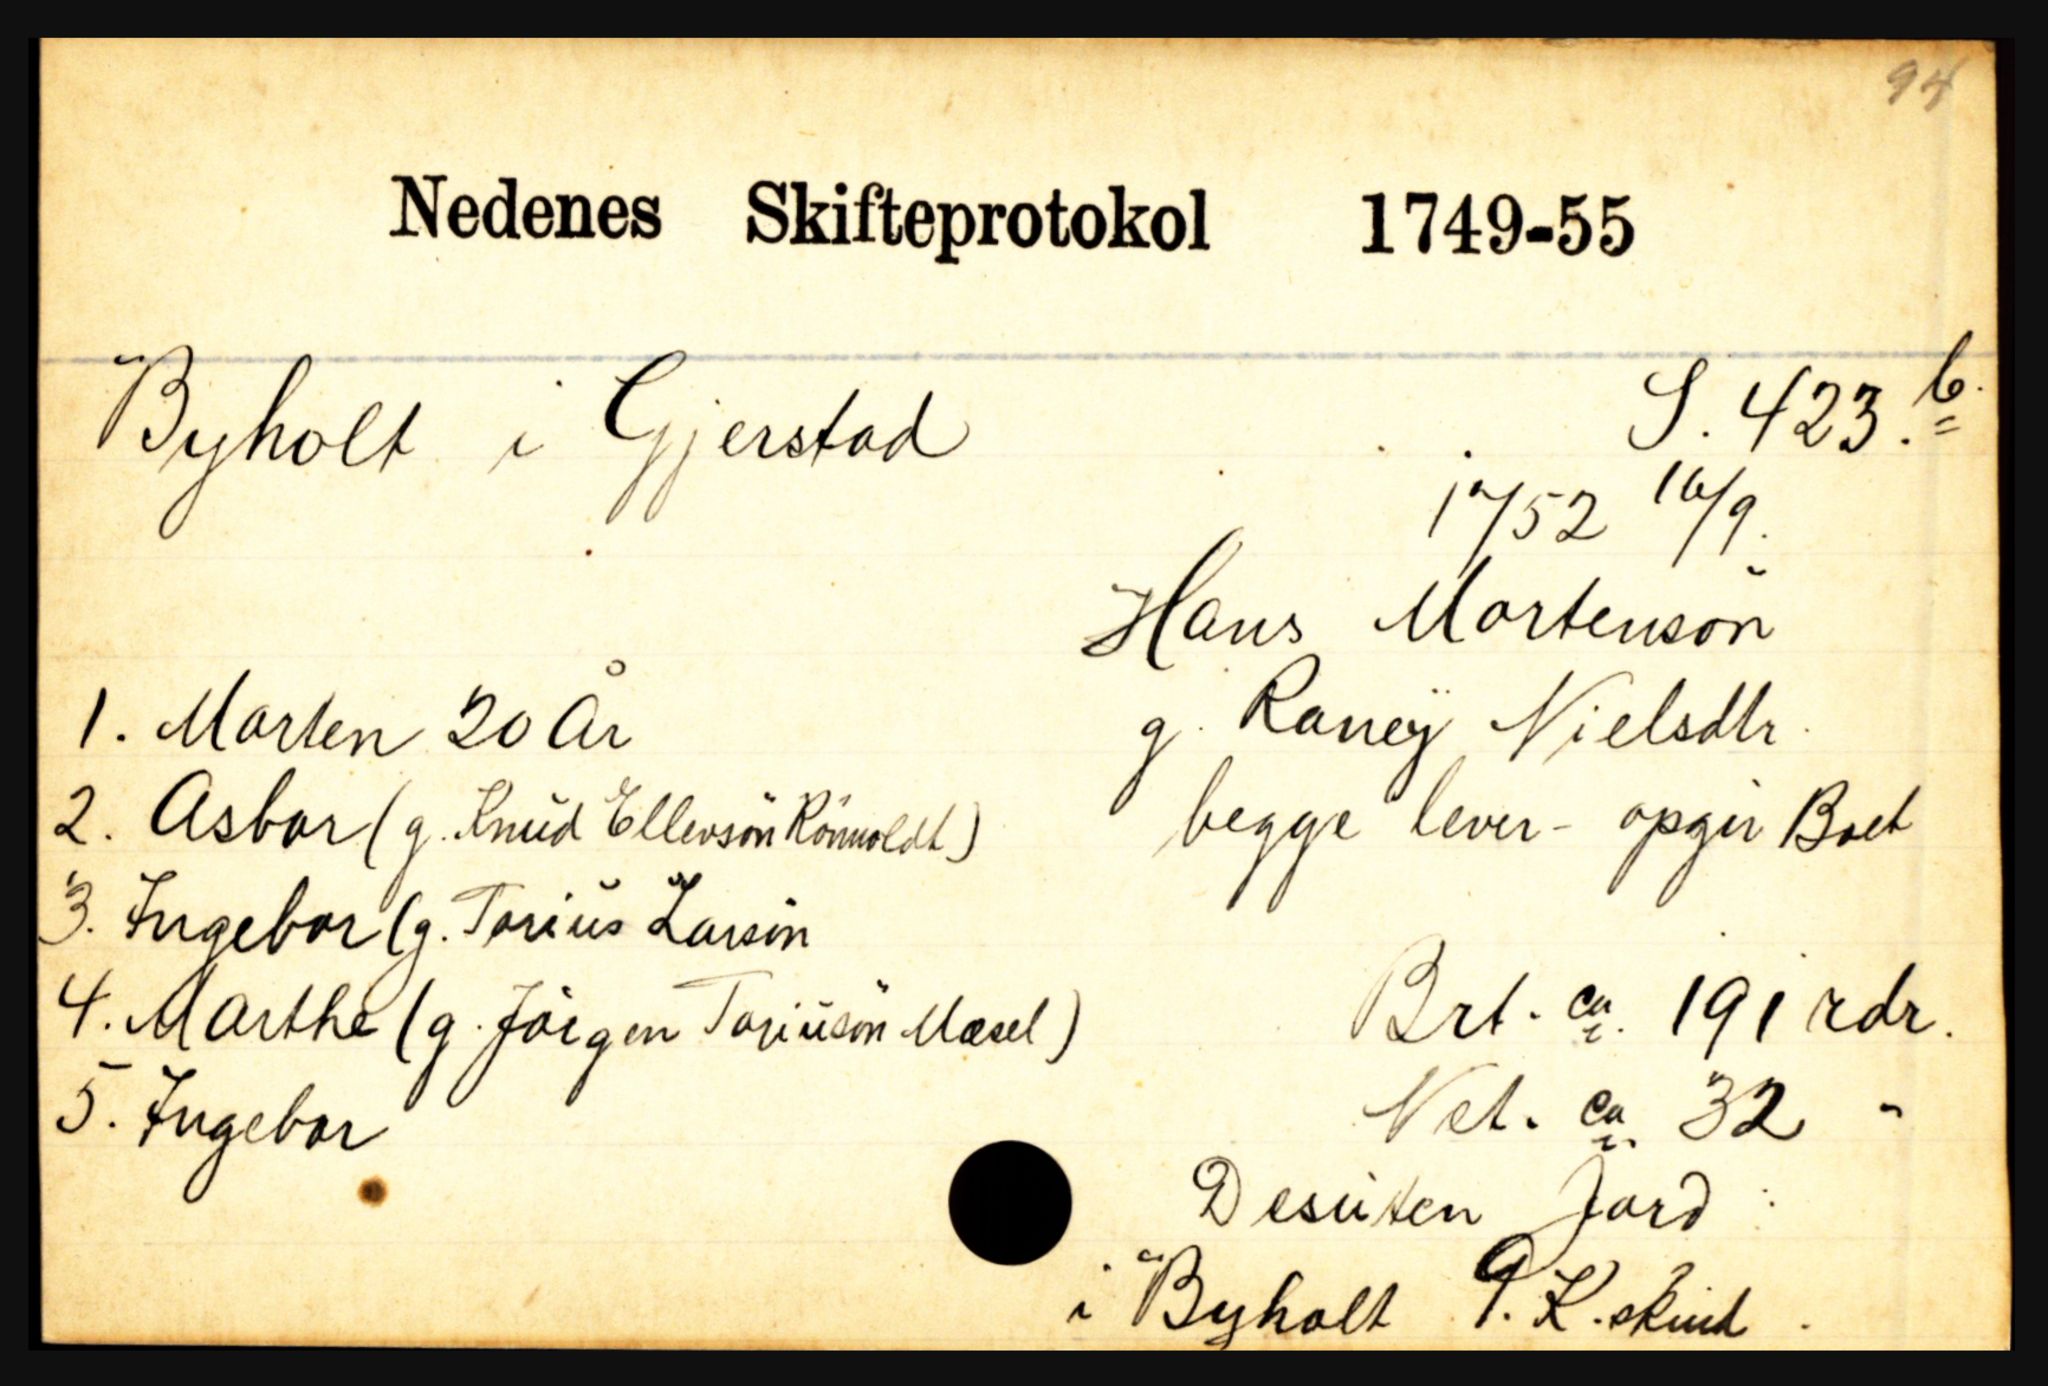 94
Nedenes Skifteprotokol 1749-55
Byholt i Gjerstad
S. 423.b.
17/52 16/9.
Hans Mortensön
g. Raney Nielsdtr.
begge lever - opgir Boet
1. Morten 20 År
2. Asbor (g. Knud Ellevsön Rönnoldt)
3. Ingebor (g. Torius Larsön
4. Marthe (g. Jörgen Toriusön Mæsel)
5. Ingebor
Brt. ca. 191 rdr.
Net. ca. 32 "
Desuten Jord
i Byholt 9. K.skind.